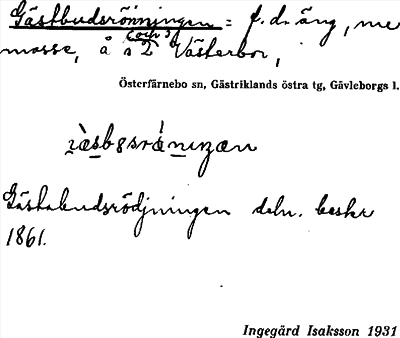 Gästbudsrönningen = f.d. äng, nu
mosse, å s 2 (och 3) Västerbor,
Österfärnebo sn, Gästriklands östra tg, Gävleborgs l.
Gästabudsrödjningen deln. beskr
1861.
Ingegärd Isaksson 1931